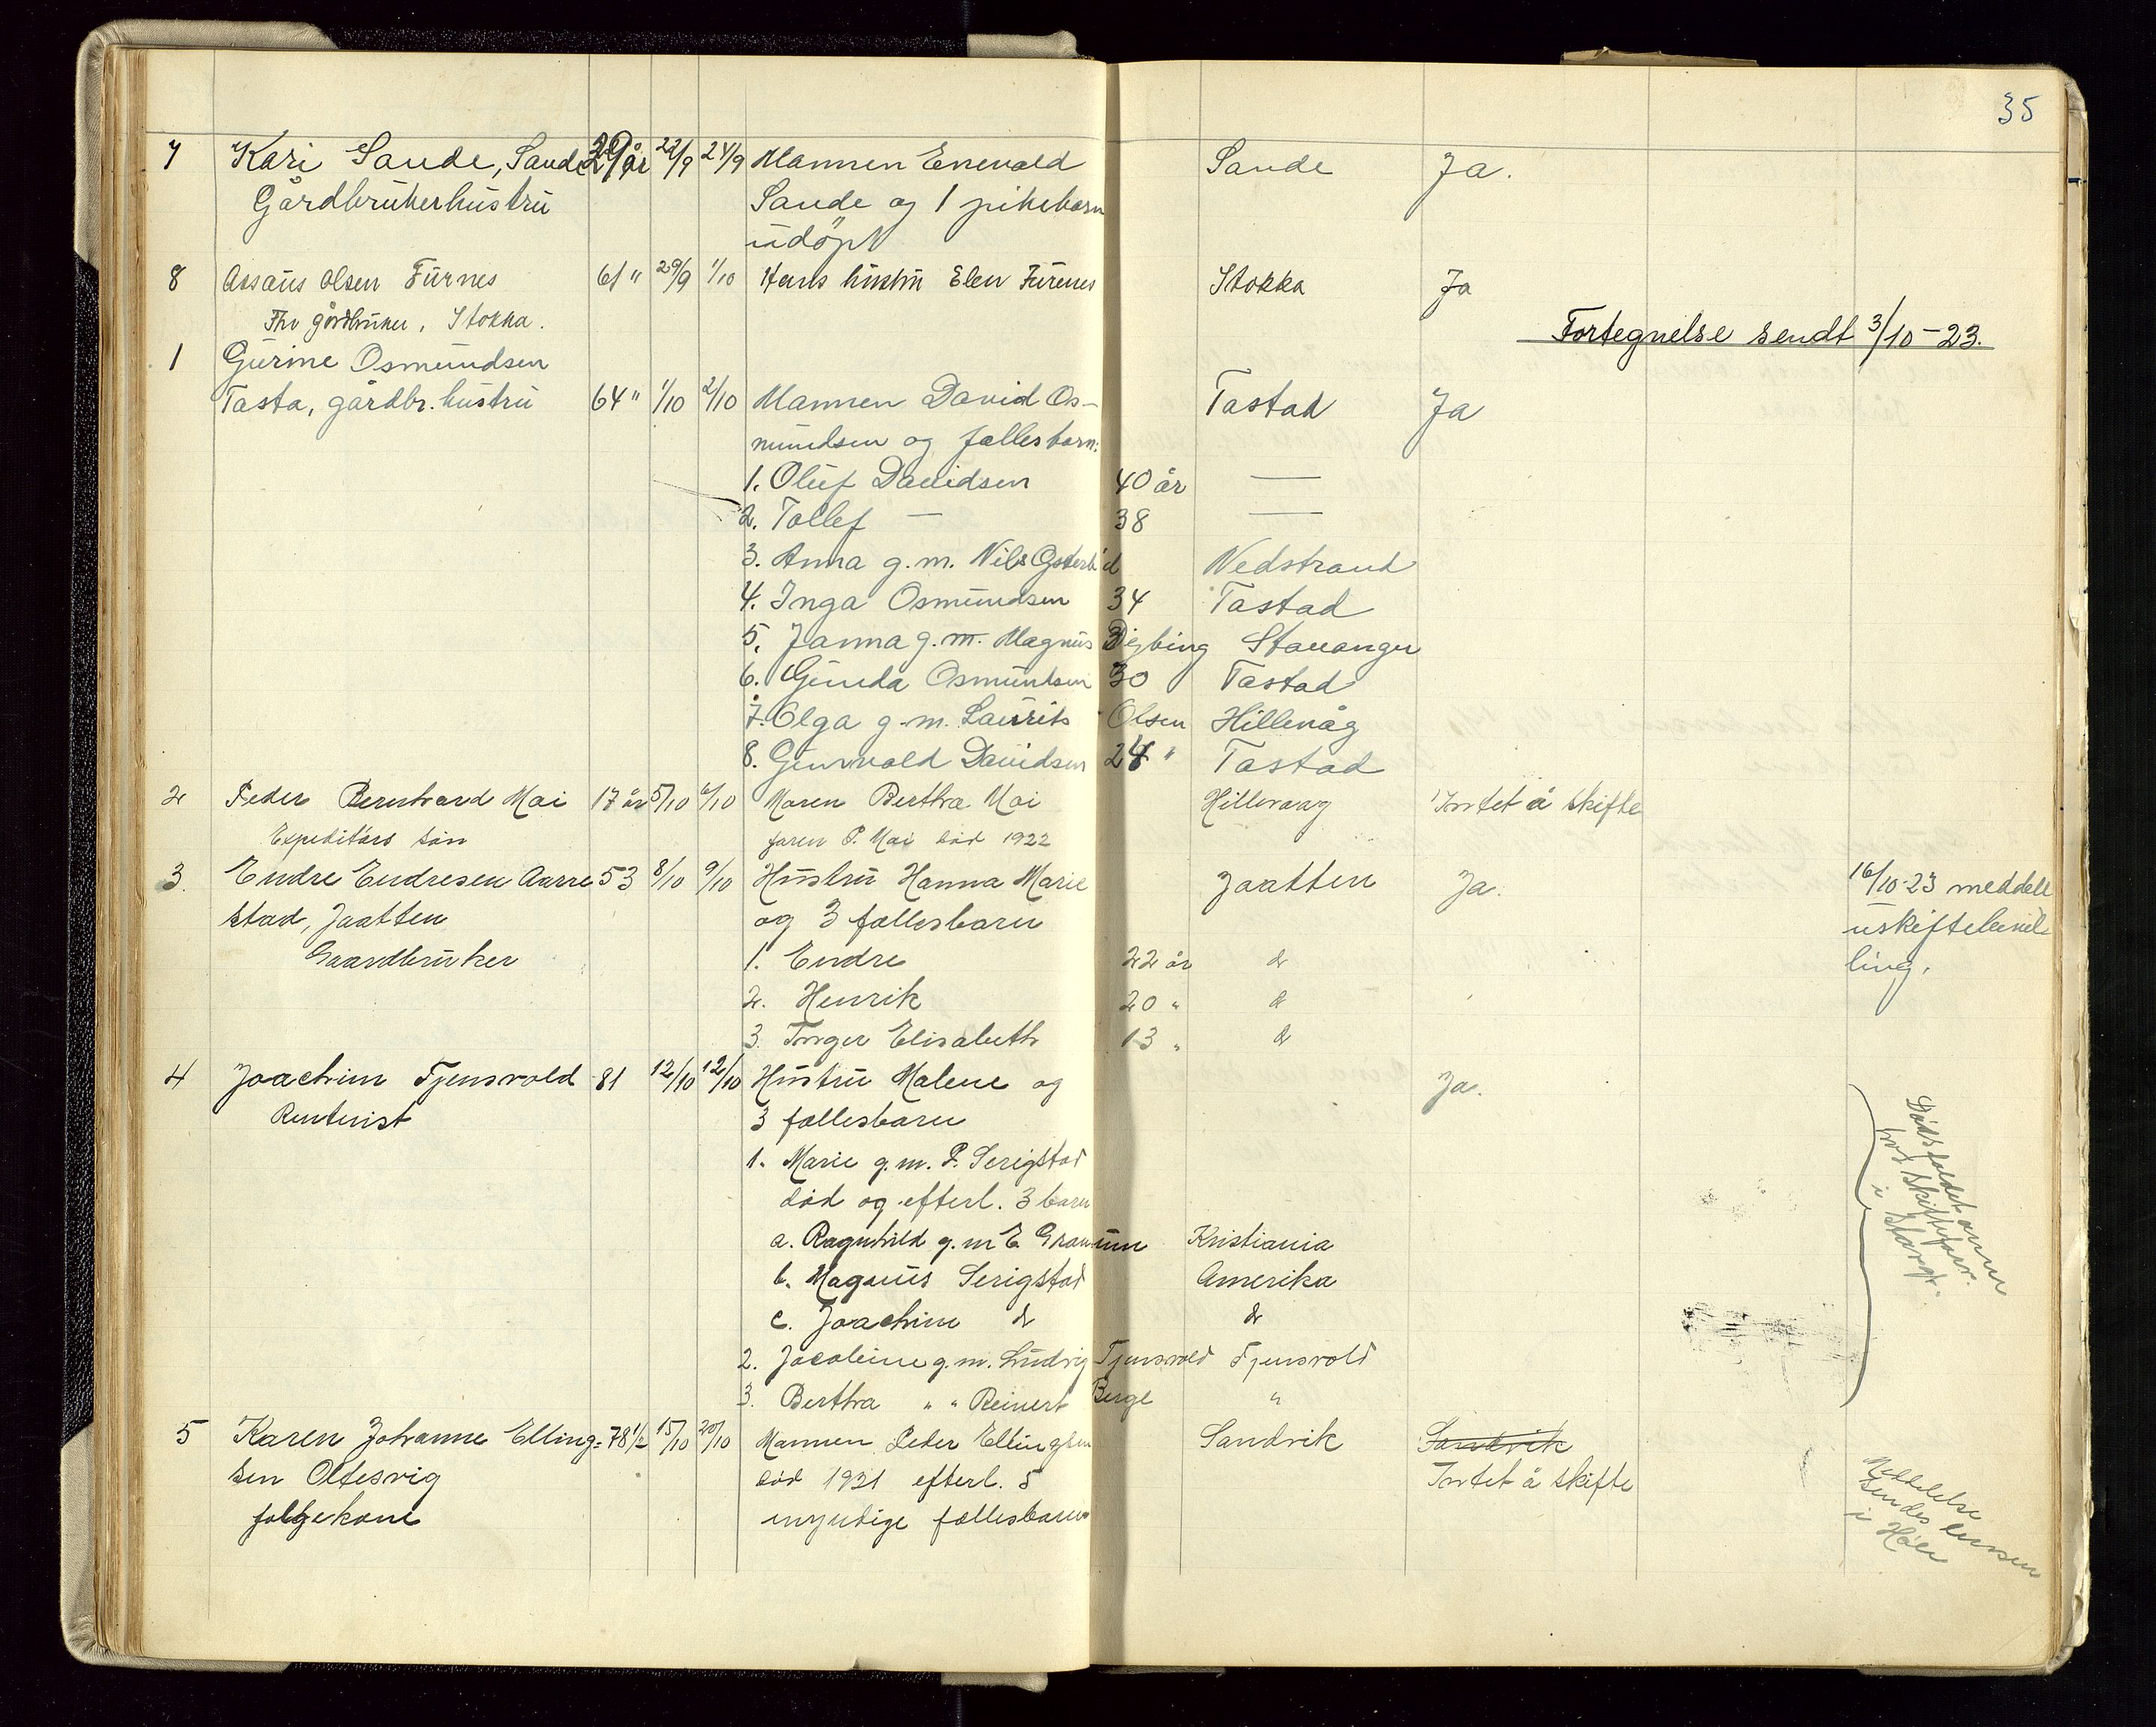 35
7 Kari Sande, Sande 29 år 22/9 24/9 Mannen Enevald Sande Ja.
Gårdbrukerhustru Sande og 1 pikebarn
udöpt
8 Assaus Olsen Furnes 61 " 29/9 1/10 Hans hustru Elen Furenes Stokka Ja
Fhv gårdbruker, Stokka.
Fortegnelse sendt 3/10-23.
1 Gurine Osmundsen
Tasta, gårdbr. hustru 64 " 1/10 2/10 Mannen David Os- Tastad Ja
mundsen og fællesbarn:
1. Oluf Davidsen 40 år —
2. Tollef — 38 —
3. Anna g.m. Nils Nedstrand
4. Inga Osmundsen 34 Tastad
5. Janna g.m. Magnus Stavanger
6. Gunda Osmundsen 30 Tastad
7. Olga g.m. Laurits Olsen Hillevåg
8. Gunvald Davidsen 24 " Tastad
2 Peder Bernhard Mai 17 år 5/10 6/10 Maren Bertha Mai Hillevaag Intet å skifte
Expeditørs søn faren P. Mai død 1922
3. Endre Endresen Aarre 53 8/10 9/10 Hustru Hanna Marie Jaatten Ja. 16/10-23 meddelt
stad, Jaatten og 3 fællesbarn uskiftebevil
Gaardbruker 1. Endre 22 år do ling.
2. Henrik 20 " do
3. Inger Elisabeth 13 " do
4 Joachim Tjensvold 81 12/10 12/10 Hustru Malene og Ja.
Rentenist 3 fællesbarn
1. Marie g.m. P. Serigstad
død og efterl. 3 barn
a. Ragnhild g.m E. Kristiania
b. Magnus Serigstad Amerika
c. Joachim do do
2. Jacobine g.m. Ludvig Tjensvold Tjensvold
3. Bertha " " Reinert Berge "
Dødsfaldet anm
hos skiftefor.
i Stavgr.
5 Karen Johanne Elling= 78 1/2 15/10 20/10 Mannen Peder Ellingsen Sandvik Sandvik
sen Oltesvig død 1921 efterl. 5 Intet å skifte
følgekone myndige fællesbarn
Meddelelse
sendes lensm
i Höle